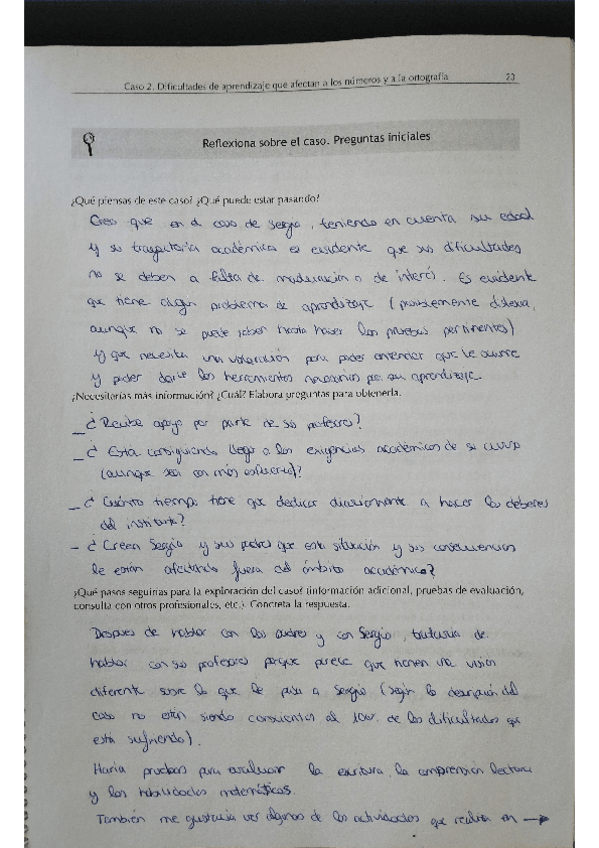 Caso 2. Dificultades de aprendizaje que afectan a los números y a la ortografía 23
Reflexiona sobre el caso. Preguntas iniciales
¿Qué piensas de este caso? ¿Qué puede estar pasando?
Creo que en el caso de Sergio, teniendo en cuenta su edad
y su trayectoria académica es evidente que sus dificultades
no se deben a falta de maduración o de interés. Es evidente
que tiene algún problema de aprendizaje (posiblemente dislexia,
aunque no se puede saber hasta hacer las pruebas pertinentes)
y que necesita una valoración para poder entender que le ocurre
y poder darle las herramientas necesarias para su aprendizaje.
¿Necesitarías más información? ¿Cuál? Elabora preguntas para obtenerla.
_ ¿Recibe apoyo por parte de sus profesores?
_ ¿Está consiguiendo llegar a las exigencias académicas de su curso
(aunque sea con más esfuerzo)?
_ ¿Cuánto tiempo tiene que dedicar diariamente a hacer los deberes
del instituto?
- ¿Creen Sergio y sus padres que esta situación y sus consecuencias
le están afectando fuera del ámbito académico?
¿Qué pasos seguirías para la exploración del caso? (información adicional, pruebas de evaluación,
consulta con otros profesionales, etc.). Concreta la respuesta.
Después de hablar con los padres y con Sergio, trataría de
hablar con sus profesores porque parece que tienen una visión
diferente sobre lo que le pasa a Sergio (según la descripción del
caso no están siendo conscientes al 100% de las dificultades que
está sufriendo).
Haría pruebas para evaluar la escritura, la comprensión lectora
y las habilidades matemáticas.
También me gustaría ver algunas de las actividades que realiza en →